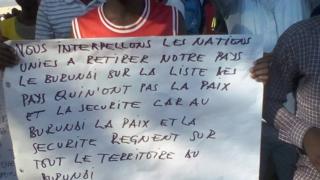 NOUS INTERPELLONS LES NATIONS
UNIES A RETIRER NOTRE PAYS
LE BURUNDI SUR LA LISTE DES
PAYS QUI N'ONT PAS LA PAIX
ET LA SECURITE CAR AU
BURUNDI LA PAIX ET LA
SECURITE REGNENT SUR
TOUT LE TERRITOIRE AU
BURUNDI